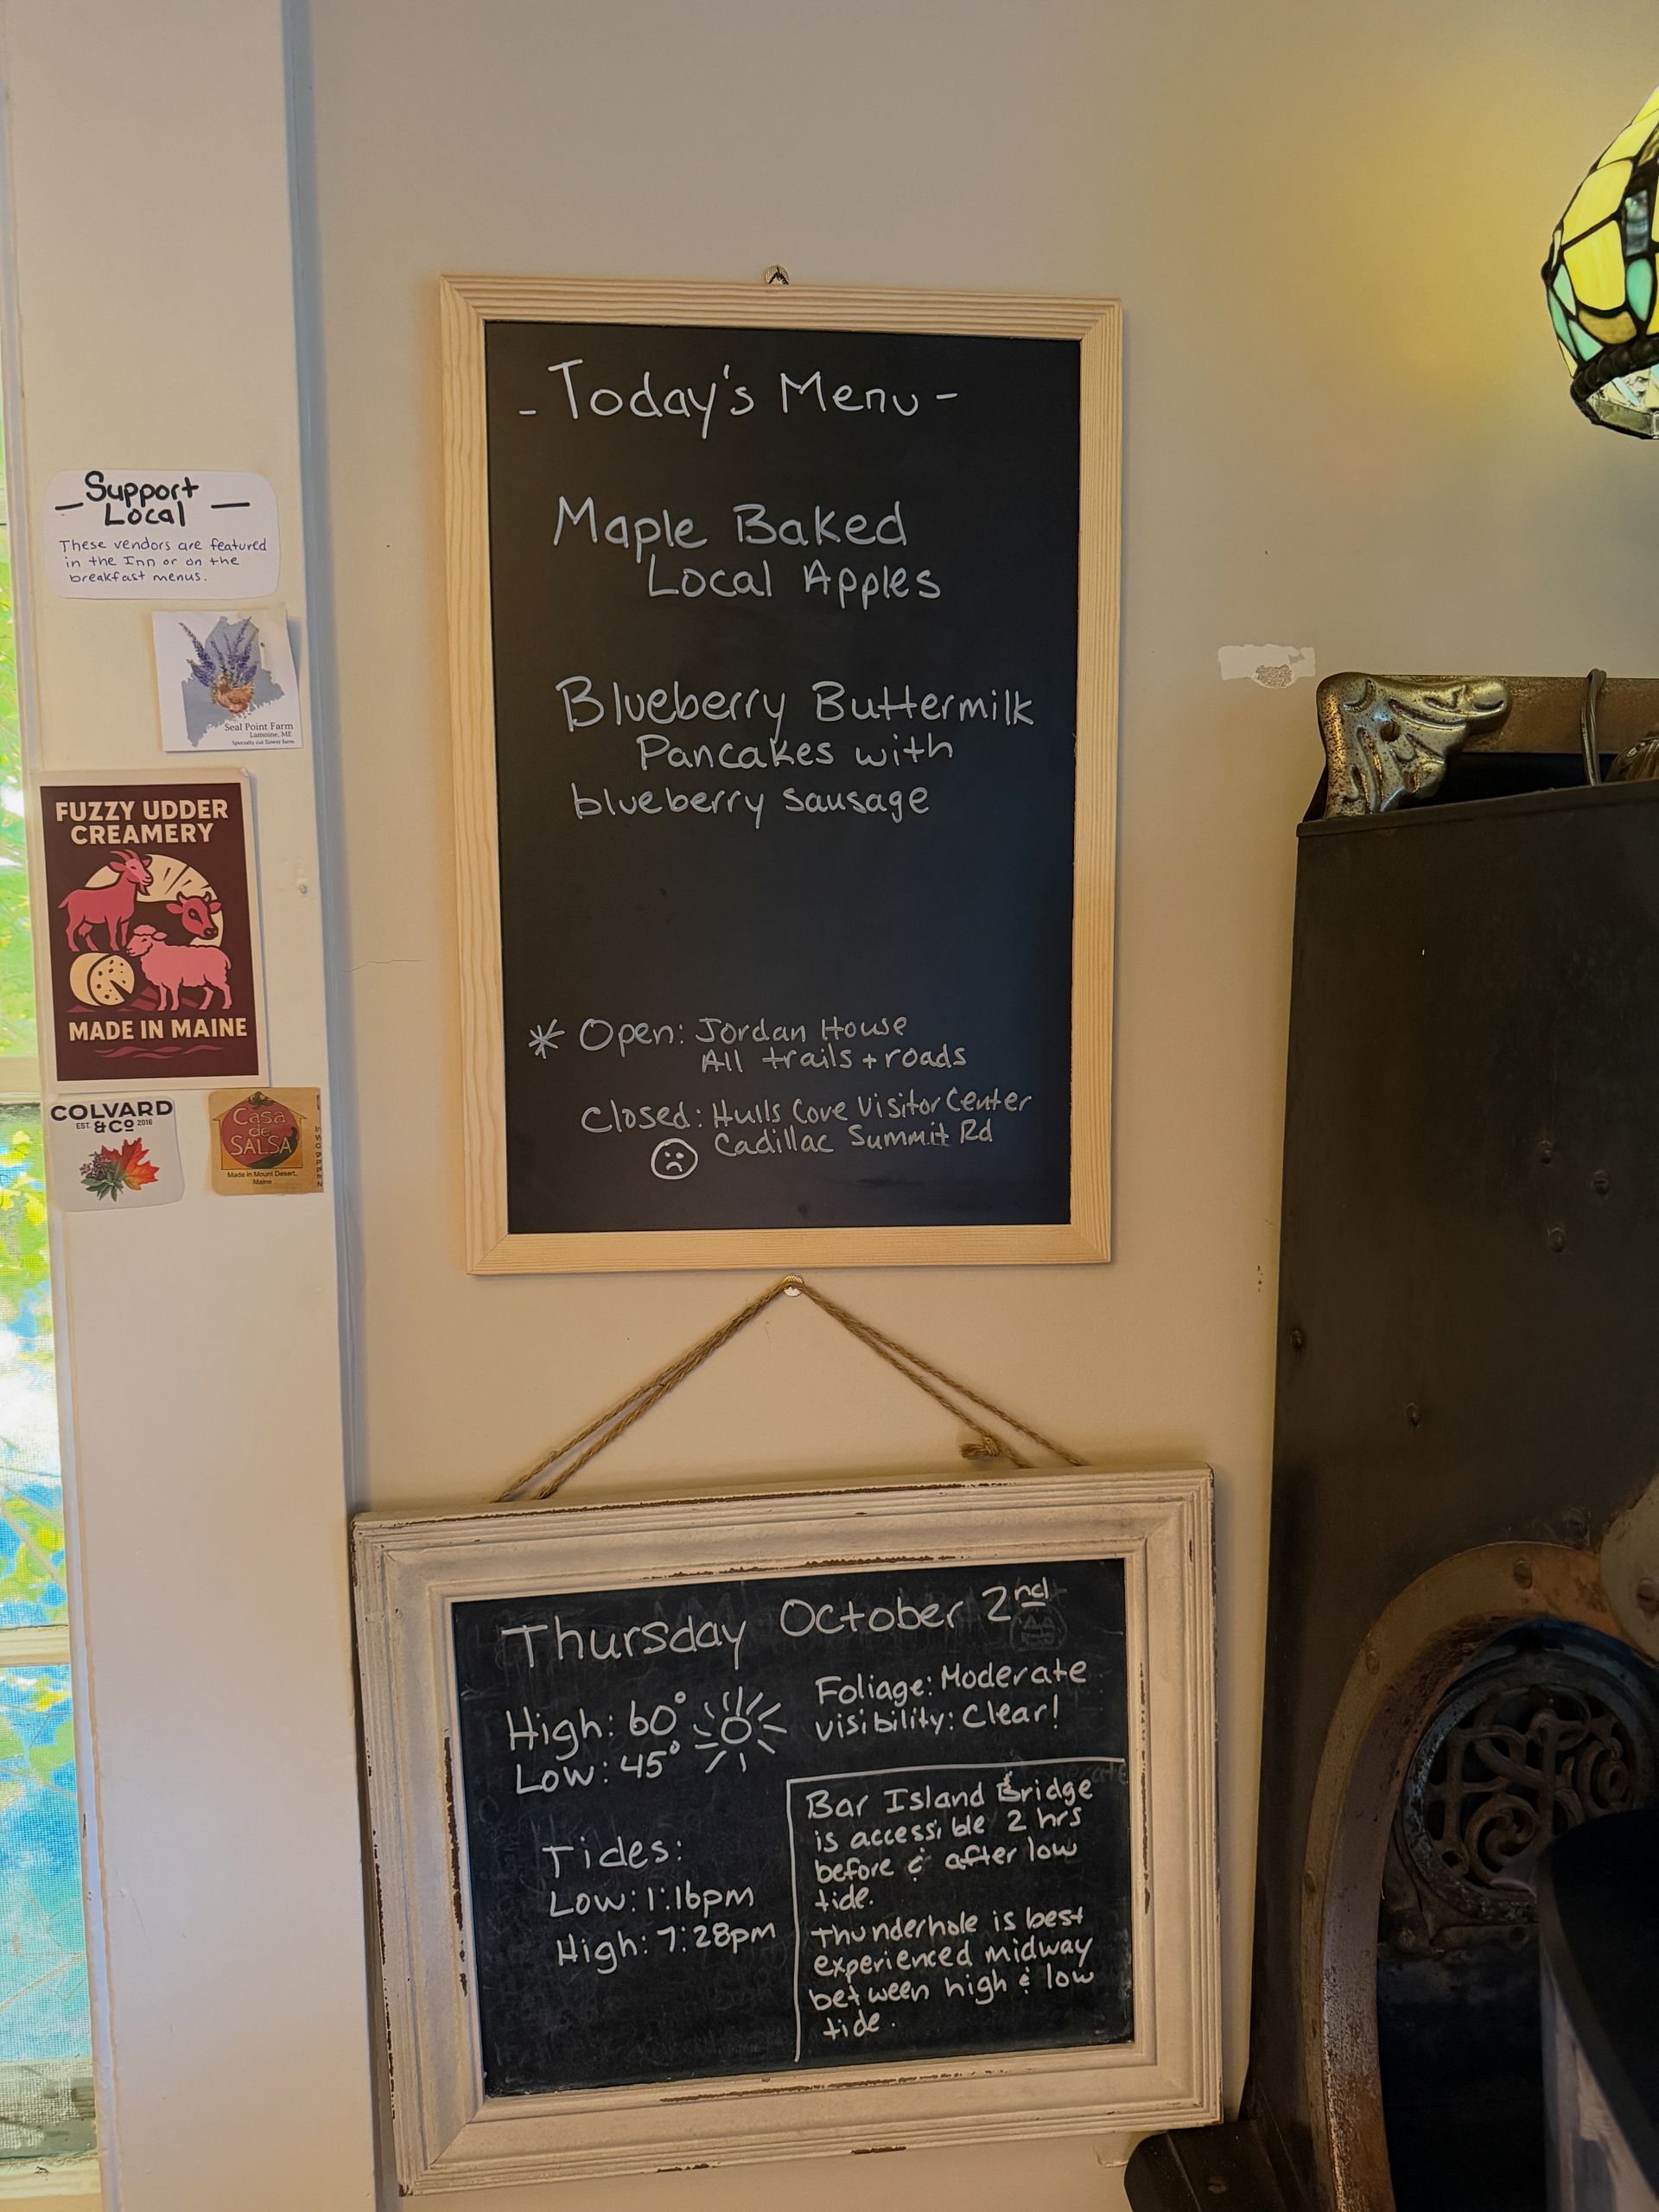 - Today's Menu -
Maple Baked
Local Apples
Blueberry Buttermilk
Pancakes with
blueberry sausage
* Open: Jordan House
All trails + roads
Closed: Hulls Cove Visitor Center
Cadillac Summit Rd
- Support Local -
These vendors are featured
in the Inn or on the
breakfast menus.
Seal Point Farm
Lamoine, ME
FUZZY UDDER
CREAMERY
MADE IN MAINE
COLVARD
EST. & CO 2016
Casa
de
SALSA
Made in Mount Desert,
Maine
Thursday October 2nd
High: 60°
Low: 45°
Foliage: Moderate
visibility: Clear!
Tides:
Low: 1:16pm
High: 7:28pm
Bar Island Bridge
is accessible 2 hrs
before & after low
tide.
Thunderhole is best
experienced midway
between high & low
tide.